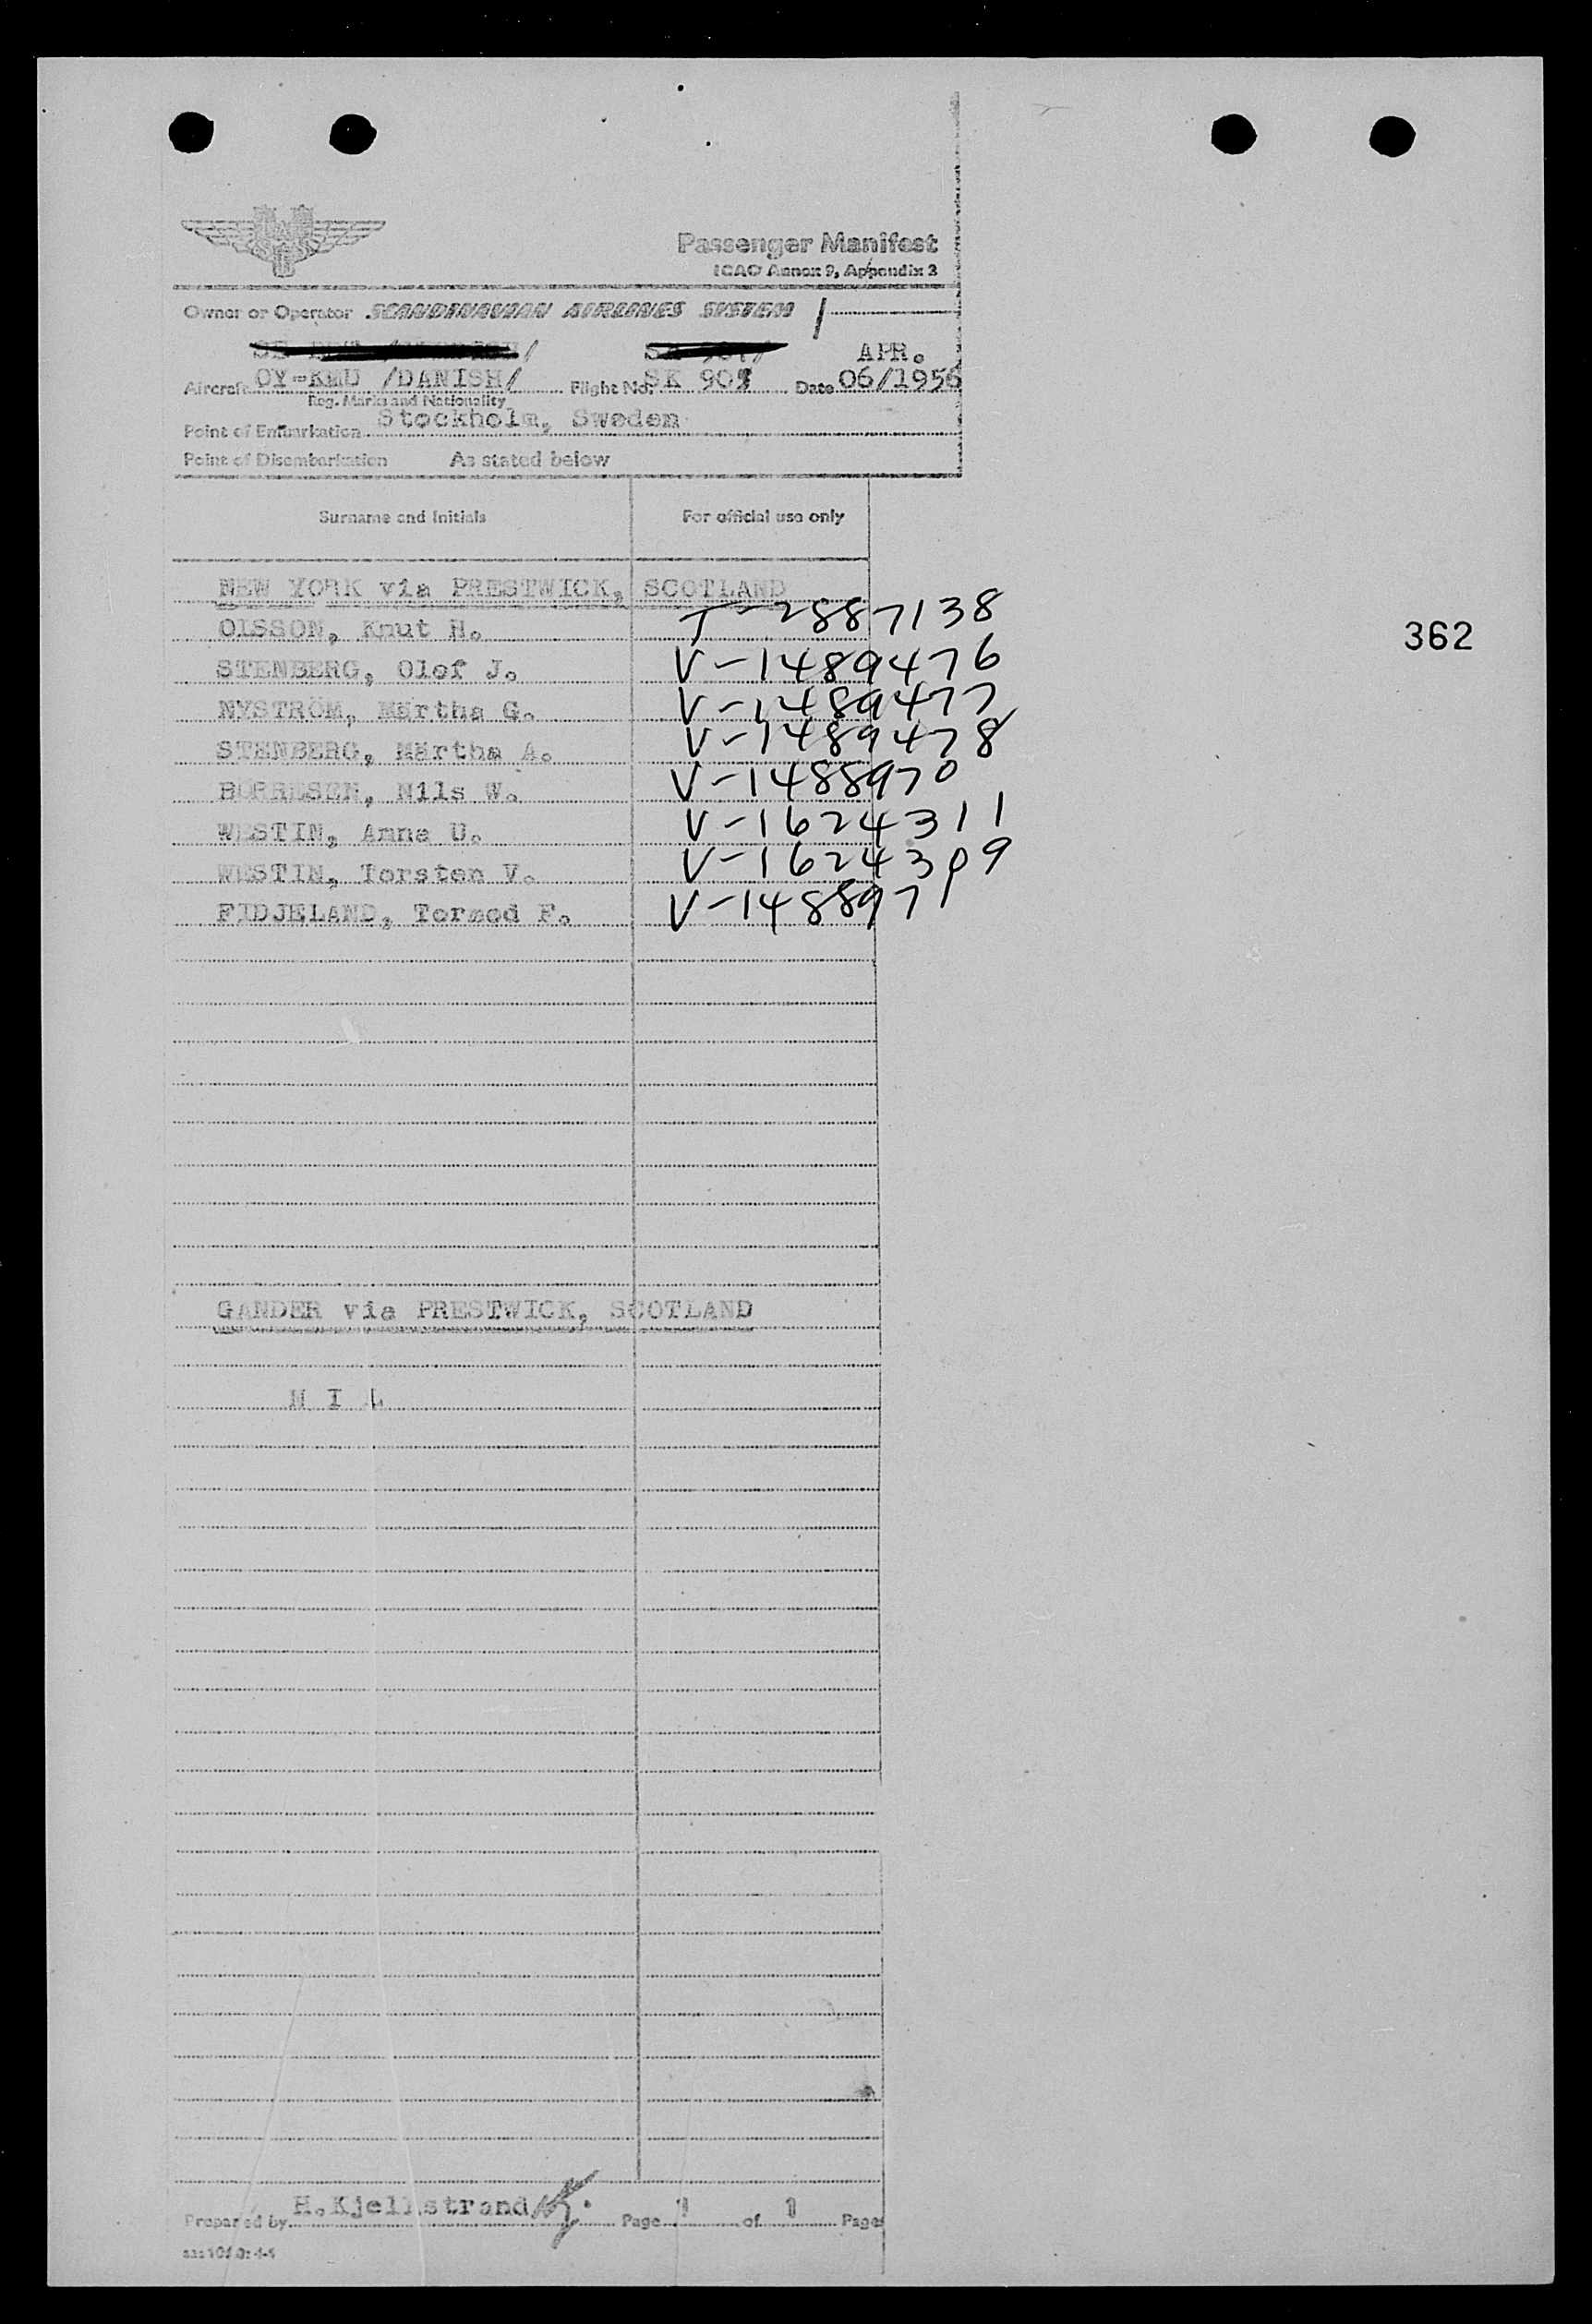 Passenger Manifest
ICAO Annex 9, Appendix 3
Owner or Operator SCANDINAVIAN AIRLINES SYSTEM
APR.
Aircraft OY-KMU /DANISH/ Flight No. SK 909 Date 06/1956
Reg. Marks and Nationality
Point of Embarkation Stockholm, Sweden
Point of Disembarkation As stated below
Surname and Initials For official use only
NEW YORK via PRESTWICK, SCOTLAND
OLSSON, Knut H. T-2887138
362
STENBERG, Olof J. V-1489476
NYSTRÖM, Märtha G. V-1489477
STENBERG, Märtha A. V-1489478
BORRESEN, Nils W. V-1488970
WESTIN, Anna U. V-1624311
WESTIN, Torsten V. V-1624309
FIDJELAND, Tormod F. V-1488971
GANDER via PRESTWICK, SCOTLAND
N I L
Prepared by H.Kjellstrand Page 1 of 1 Pages